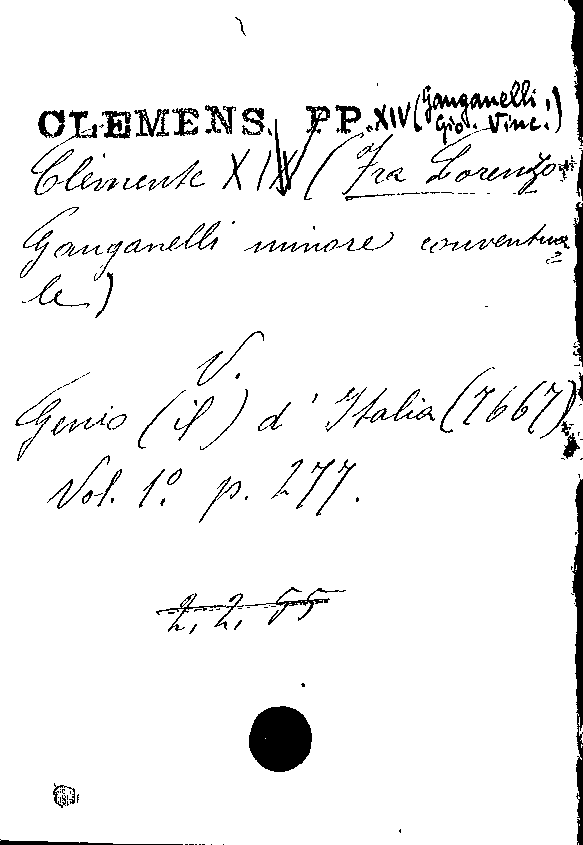 CLEMENS, PP. XIV (Ganganelli, Gio. Vinc.)
Clemente XIV (Fra Lorenzo
Ganganelli minore conventua=
le)
V.
Genio (il) d'Italia (7667)
Vol. 1º p. 277.
2. 2. 55